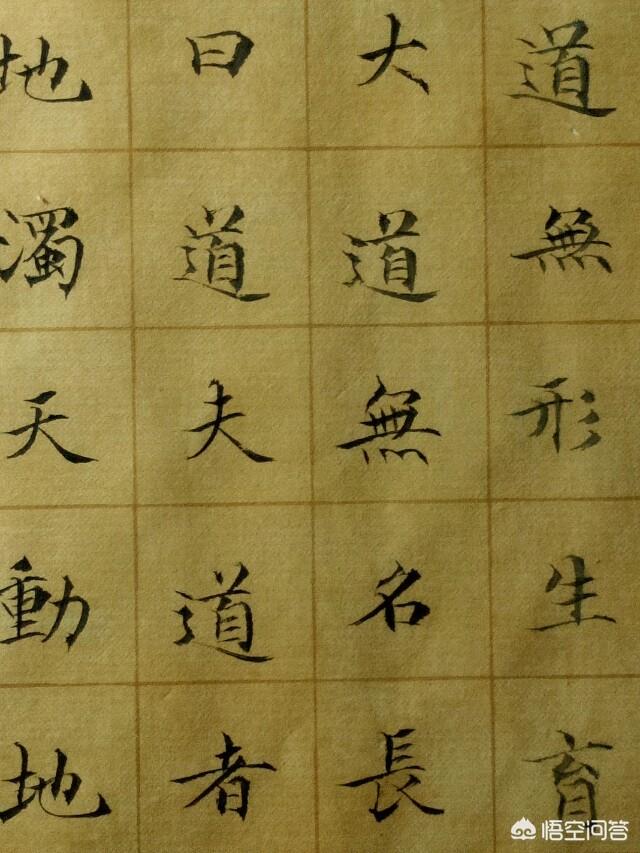 道無形生育
大道無名長
曰道夫道者
地濁天動地
悟空问答